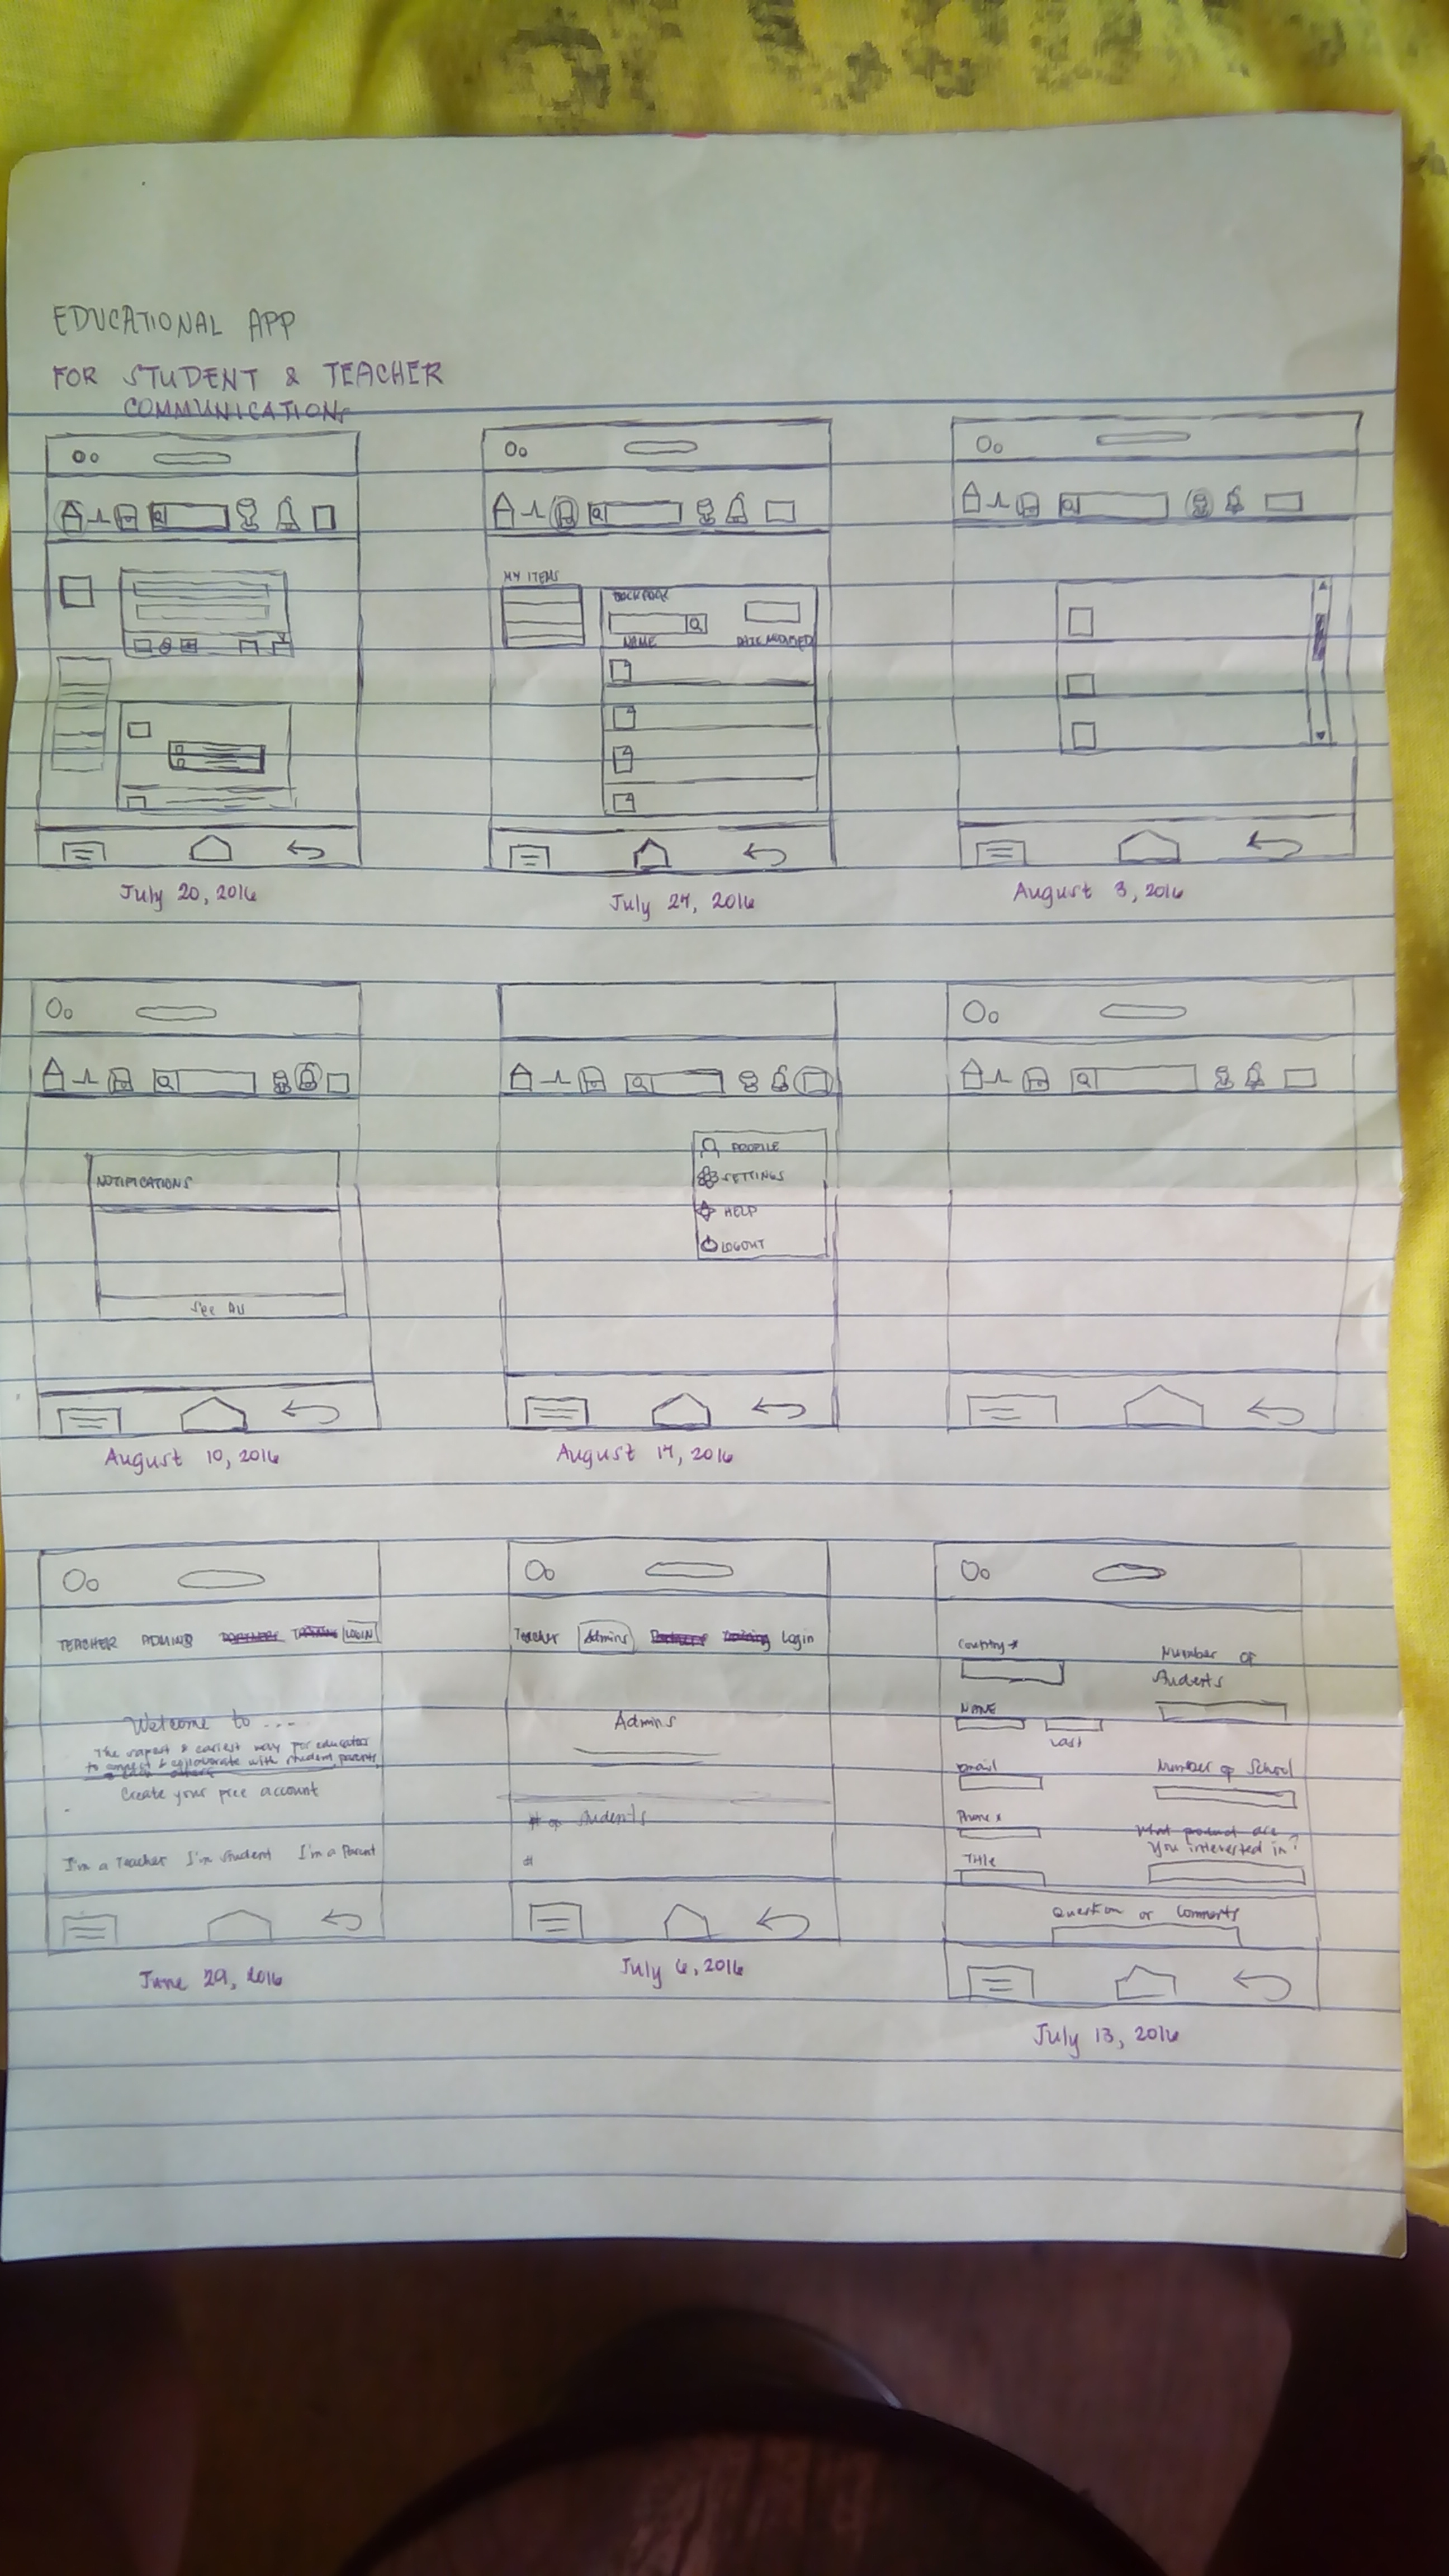 EDUCATIONAL APP
FOR STUDENT & TEACHER
COMMUNICATIONS
MY ITEMS
BACKPACK
NAME
DATE MODIFIED
July 20, 2016
July 27, 2016
August 3, 2016
NOTIFICATIONS
See All
PROFILE
SETTINGS
HELP
LOGOUT
August 10, 2016
August 17, 2016
TEACHER ADMINS LOGIN
Welcome to ....
The safest & easiest way for educator
to connect & collaborate with student, parents
Create your free account
I'm a Teacher I'm Student I'm a Parent
June 29, 2016
Teacher Admins Partners Training Login
Admins
# of Students
#
July 6, 2016
Country *
Number of
Students
NAME
Last
Email
Number of School
Phone *
What are
You interested in?
Title
Question or Comments
July 13, 2016